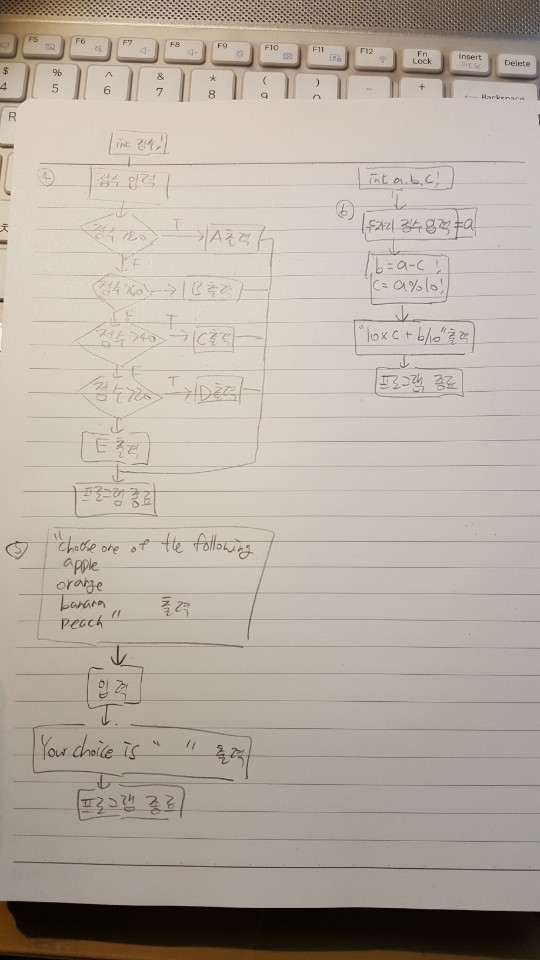 F5 F6 F7 F8 F9 F10 F11 F12 Fn Lock Insert Delete
$ 4 % 5 ^ 6 & 7 * 8 ( 9 ) - +
Backspace
R
int 점수;
④ 점수 입력
점수>80 T A출력
F
B출력
F
점수>40 T C출력
F
점수>20 T D출력
E 출력
프로그램 종료
⑤ "choose one of the following
apple
orange
banana
peach" 출력
입력
Your choice is " " 출력
프로그램 종료
int a,b,c;
⑥ 두자리 정수 입력=a
b=a-c;
c=a%10;
"10xc+b/10"출력
프로그램 종료